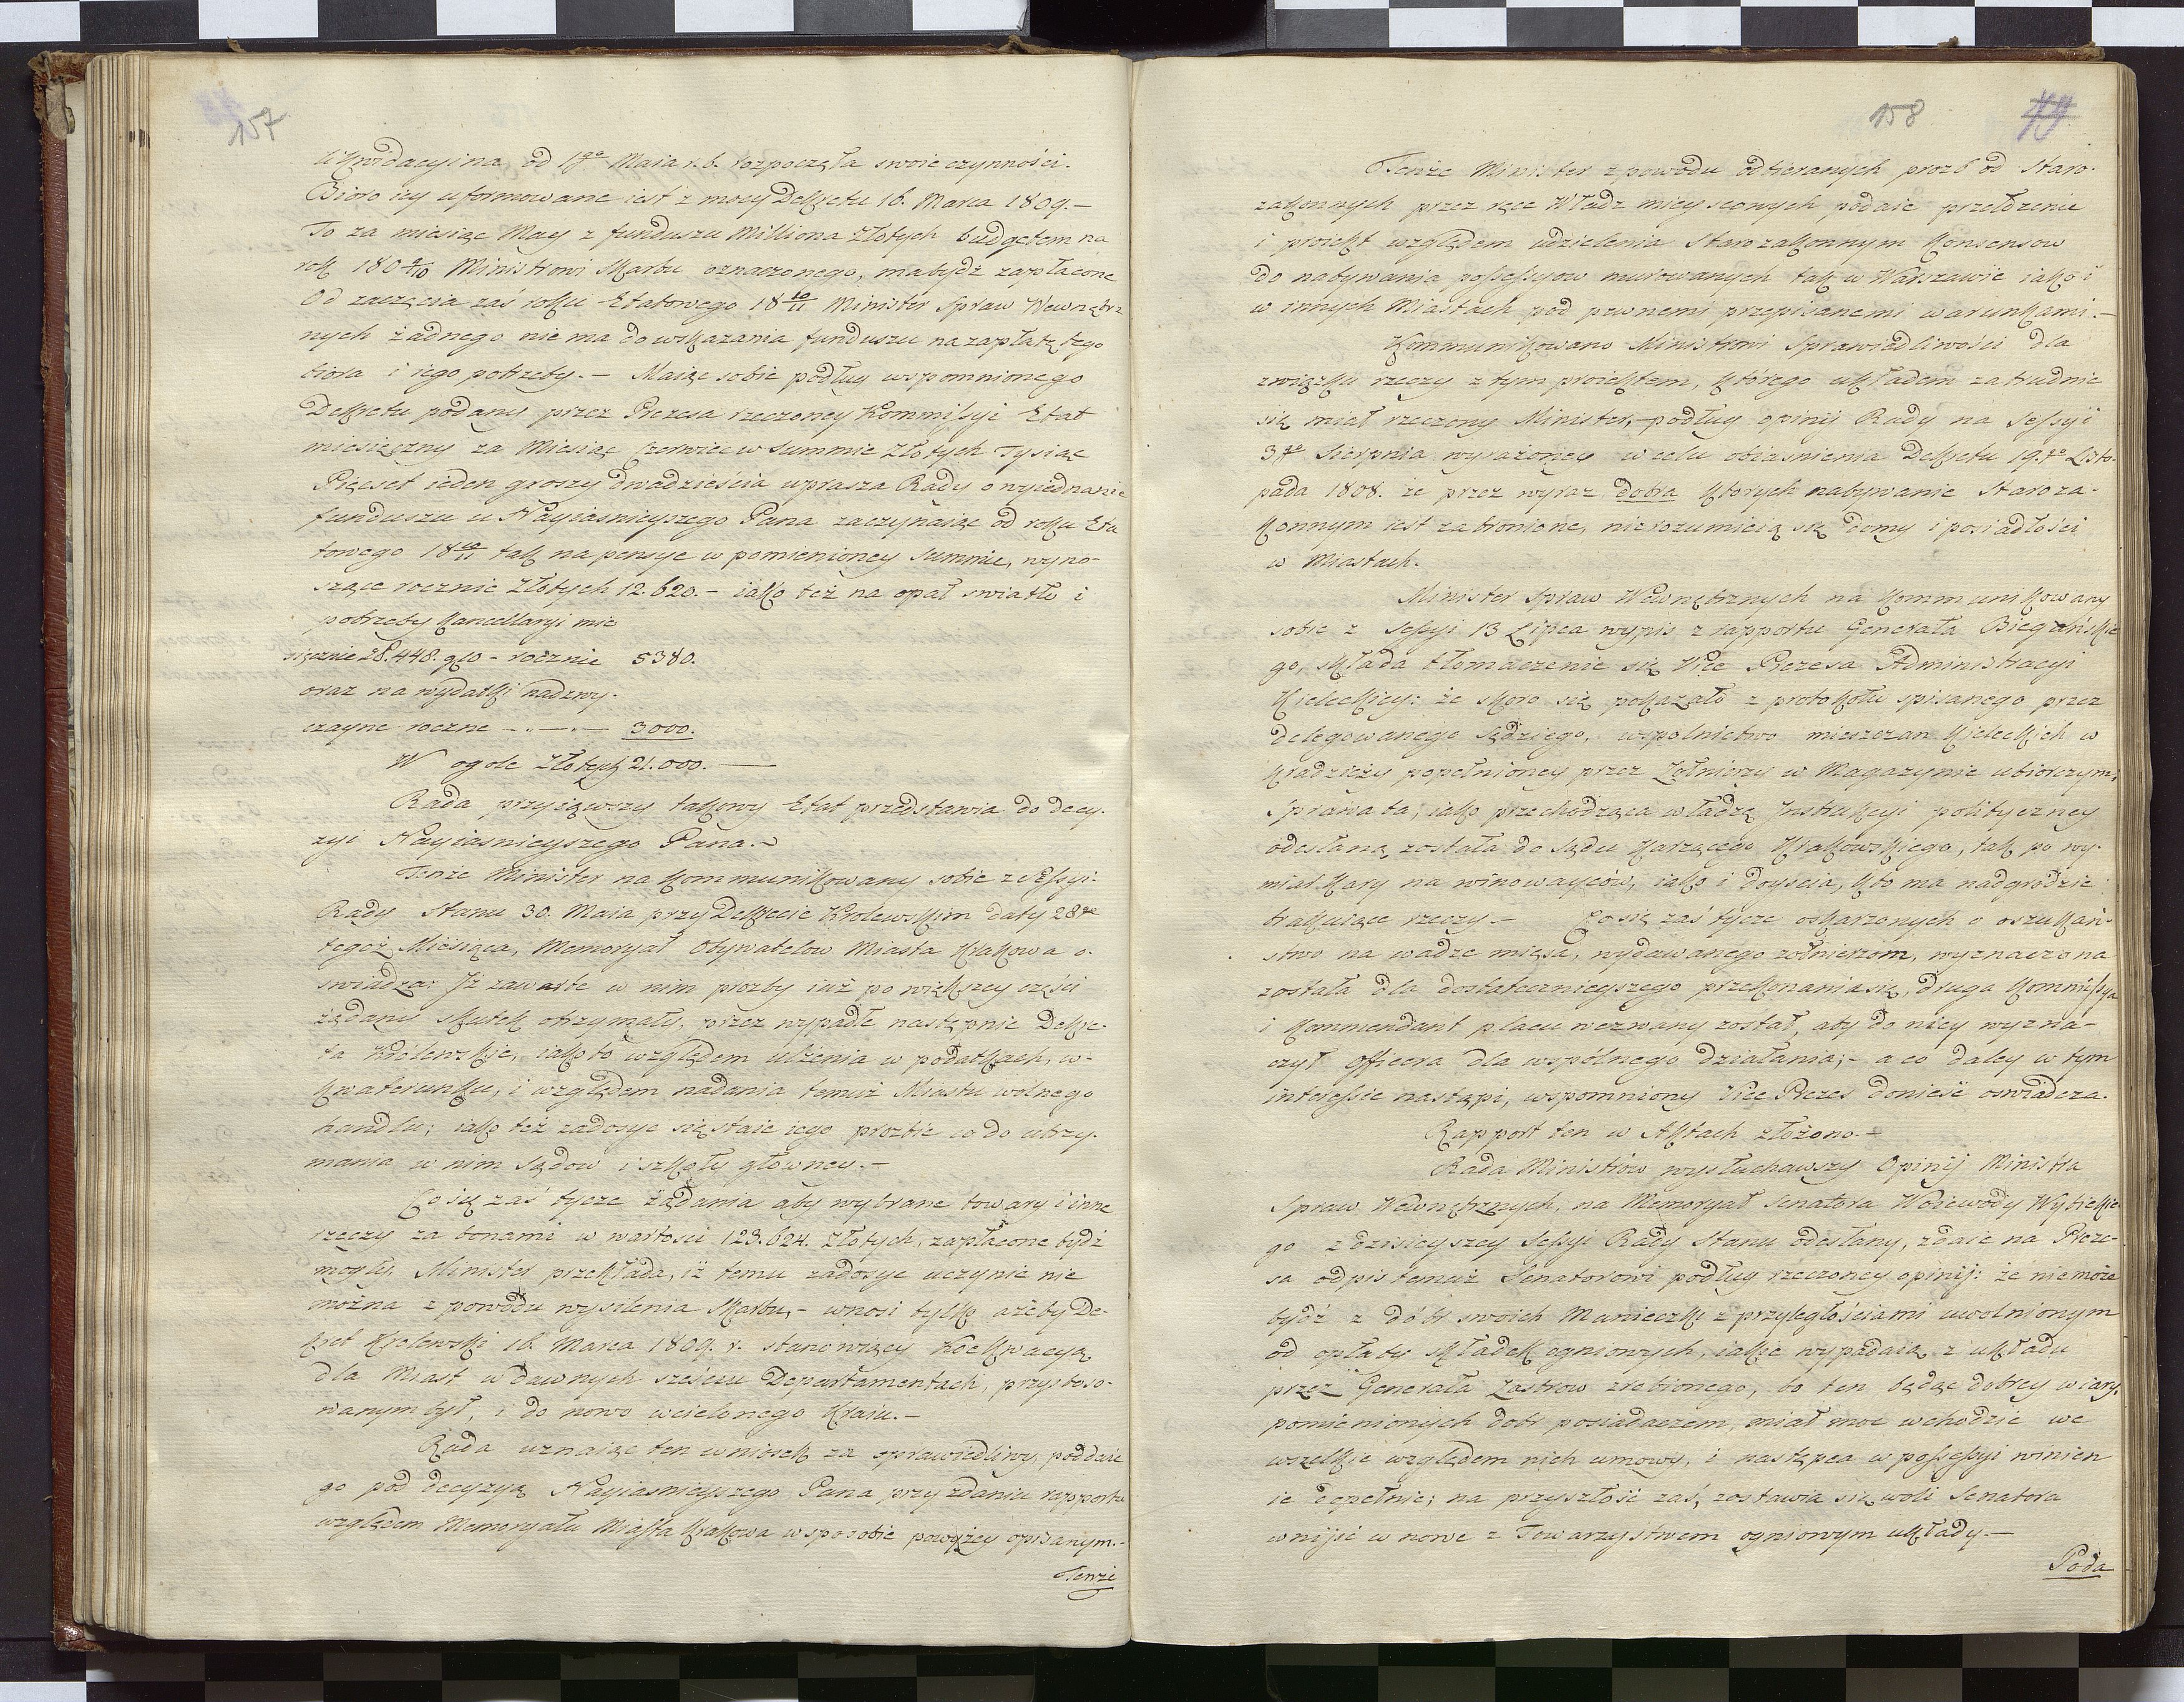 157
likwidacyina od 1go Maia r. b. rozpoczęła swoie czynności.
Bioro iey uformowane iest z mocy Dekretu 16. Marca 1809.—
To za miesiąc May z funduszu Milliona Złotych budgetem na
rok 180 9/10 Ministrowi Skarbu oznaczonego, ma bydź zapłacone
Od zaczęcia zaś roku Etatowego 18 10/11 Minister Spraw Wewnętrz
nych żadnego nie ma do wskazania funduszu na zapłatę tego
biora i iego potrzeby.— Maiąc sobie podług wspomnionego
Dekretu podany przez Prezesa rzeczoney Kommissyi Etat
miesięczny za Miesiąc Czerwiec w Summie Złotych Tysiąc
Pięcset ieden groszy dwadzieścia uprasza Rady o wyiednanie
funduszu u Nayiasnieyszego Pana zaczynaiąc od roku Eta
towego 18 10/11 tak na pensye w pomienioney Summie, wyno-
szące rocznie Złotych 12.620.— iako też na opał swiatło i
potrzeby Kancellaryi mie
sięcznie Zł. 448. g 10 - rocznie 5380.
oraz na wydatki nadzwy-
czayne roczne — . . — . — 3000.
W ogole Złotych 21.000.—
Rada przyiąwszy takowy Etat przedstawia do decy-
zyi Nayiasnieyszego Pana.—
Tenże Minister na kommunikowany sobie z Sessyi
Rady Stanu 30. Maia przy Dekrecie Krolewskim daty 28go
tegoż Miesiąca, Memoryał Obywatelow Miasta Krakowa o-
swiadcza: Iż zawarte w nim prozby iuż po większey części
żądany skutek otrzymały, przez wypadłe następnie Dekre-
ta Królewskie, iako to względem ulżenia w podatkach, w-
kwaterunku, i względem nadania temuż Miastu wolnego
handlu; iako też zadosyc się staie iego prozbie co do utrzy-
mania w nim Sądow i szkoły główney.—
Co się zaś tycze żądania aby wybrane towary i inne
rzeczy za bonami w wartosci 123.624. Złotych, zapłacone bydź
mogły. Minister przekłada, iż temu zadosyc uczynic nie
można z powodu wysilenia Skarbu,- wnosi tylko ażeby De-
kret Krolewski 16. Marca 1809. r. stanowiący Koekwacyą
dla Miast w dawnych sześciu Departamentach, przystoso-
wanym był, i do nowo wcielonego Kraiu.—
Rada uznaiąc ten wniosek za sprawiedliwy, poddaie
go pod decyzyą Nayiasnieyszego Pana przy zdaniu rapportu
względem Memoryału Miasta Krakowa w sposobie powyżey opisanym.—
Tenże
158
Tenże Minister z powodu odbieranych prozb od Staro-
zakonnych przez ręce Władz mieyscowych podaie przełożenie
i proiekt względem udzielenia Starozakonnym konsensow
do nabywania possessyow murowanych tak w Warszawie iako i
w innych Miastach pod pewnemi przepisanemi warunkami.—
Kommunikowano Ministrowi Sprawiedliwości dla
związku rzeczy z tym proiektem, którego układem zatrudnic
się miał rzeczony Minister, podług opinij Rady na Sessyi
3go Sierpnia wyrażoney w celu obiasnienia Dekretu 19.go Listo-
pada 1808. że przez wyraz dobra ktorych nabywanie Staroza-
konnym iest zabronione, nierozumieią się domy i posiadłości
w Miastach.
Minister Spraw Wewnętrznych na kommunikowany
sobie z Sessyi 13 Lipca wypis z rapportu Generała Biegańskie
go, składa tłomaczenie się Vice Prezesa Administracyi
Kieleckiey: że skoro się pokazało z protokołu spisanego przez
delegowanego Sędziego, wspolnictwo mieszczan Kieleckich w
kradzieży popełnioney przez Żołnierzy w Magazynie ubiorczym,
Sprawa ta, iako przechodząca władzę Instrukcyi polityczney
odesłaną została do Sądu karzącego Krakowskiego, tak po wy-
miar kary na winowayców, iako i doyscia, kto ma nadgrodzic
brakuiące rzeczy.— Co się zaś tycze oskarzonych o oszukań-
stwo na wadze mięsa, wydawanego żołnierzom, wyznaczona
została dla dostatecznieyszego przekonania się, druga kommissya
i kommendant placu wezwany został, aby do niey wyzna-
czył Officera dla wspólnego działania;— a co daley w tym
interessie nastąpi, wspomniony Vice Prezes doniesć oswiadcza.
Rapport ten w Aktach złożono.—
Rada Ministrów wysłuchawszy Opinij Ministra
Spraw Wewnętrznych, na Memoryał Senatora Woiewody Wybickie
go z dzisieyszey Sessyi Rady Stanu odesłany, zdaie na Preze-
sa odpis temuż Senatorowi podług rzeczoney opinij: że nie może
bydź z dóbr swoich Manieczki z przyległościami uwolnionym
od opłaty składek ogniowych, iakie wypadaią z układu
przez Generała Zastrow zrobionego, bo ten będąc dobrey wiary
pomienionych dobr posiadaczem, miał moc wchodzic we
wszelkie względem nich umowy, i następca w possessyi winien
ie dopełnic; na przyszłość zaś, zostawia się woli Senatora
wniść w nowe z Towarzystwem ogniowym układy.—
Poda